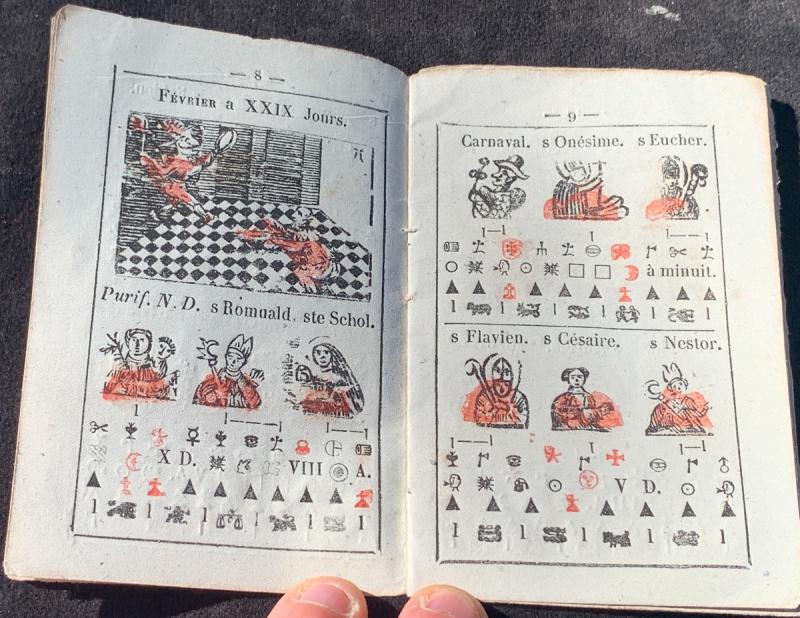 — 8 —
FÉVRIER a XXIX Jours.
Purif. N. D. s Romuald. ste Schol.
X D. VIII A.
1 1 1 1 1
— 9 —
Carnaval. s Onésime. s Eucher.
à minuit.
1 1 1 1 1
s Flavien. s Césaire. s Nestor.
V D.
1 1 1 1 1